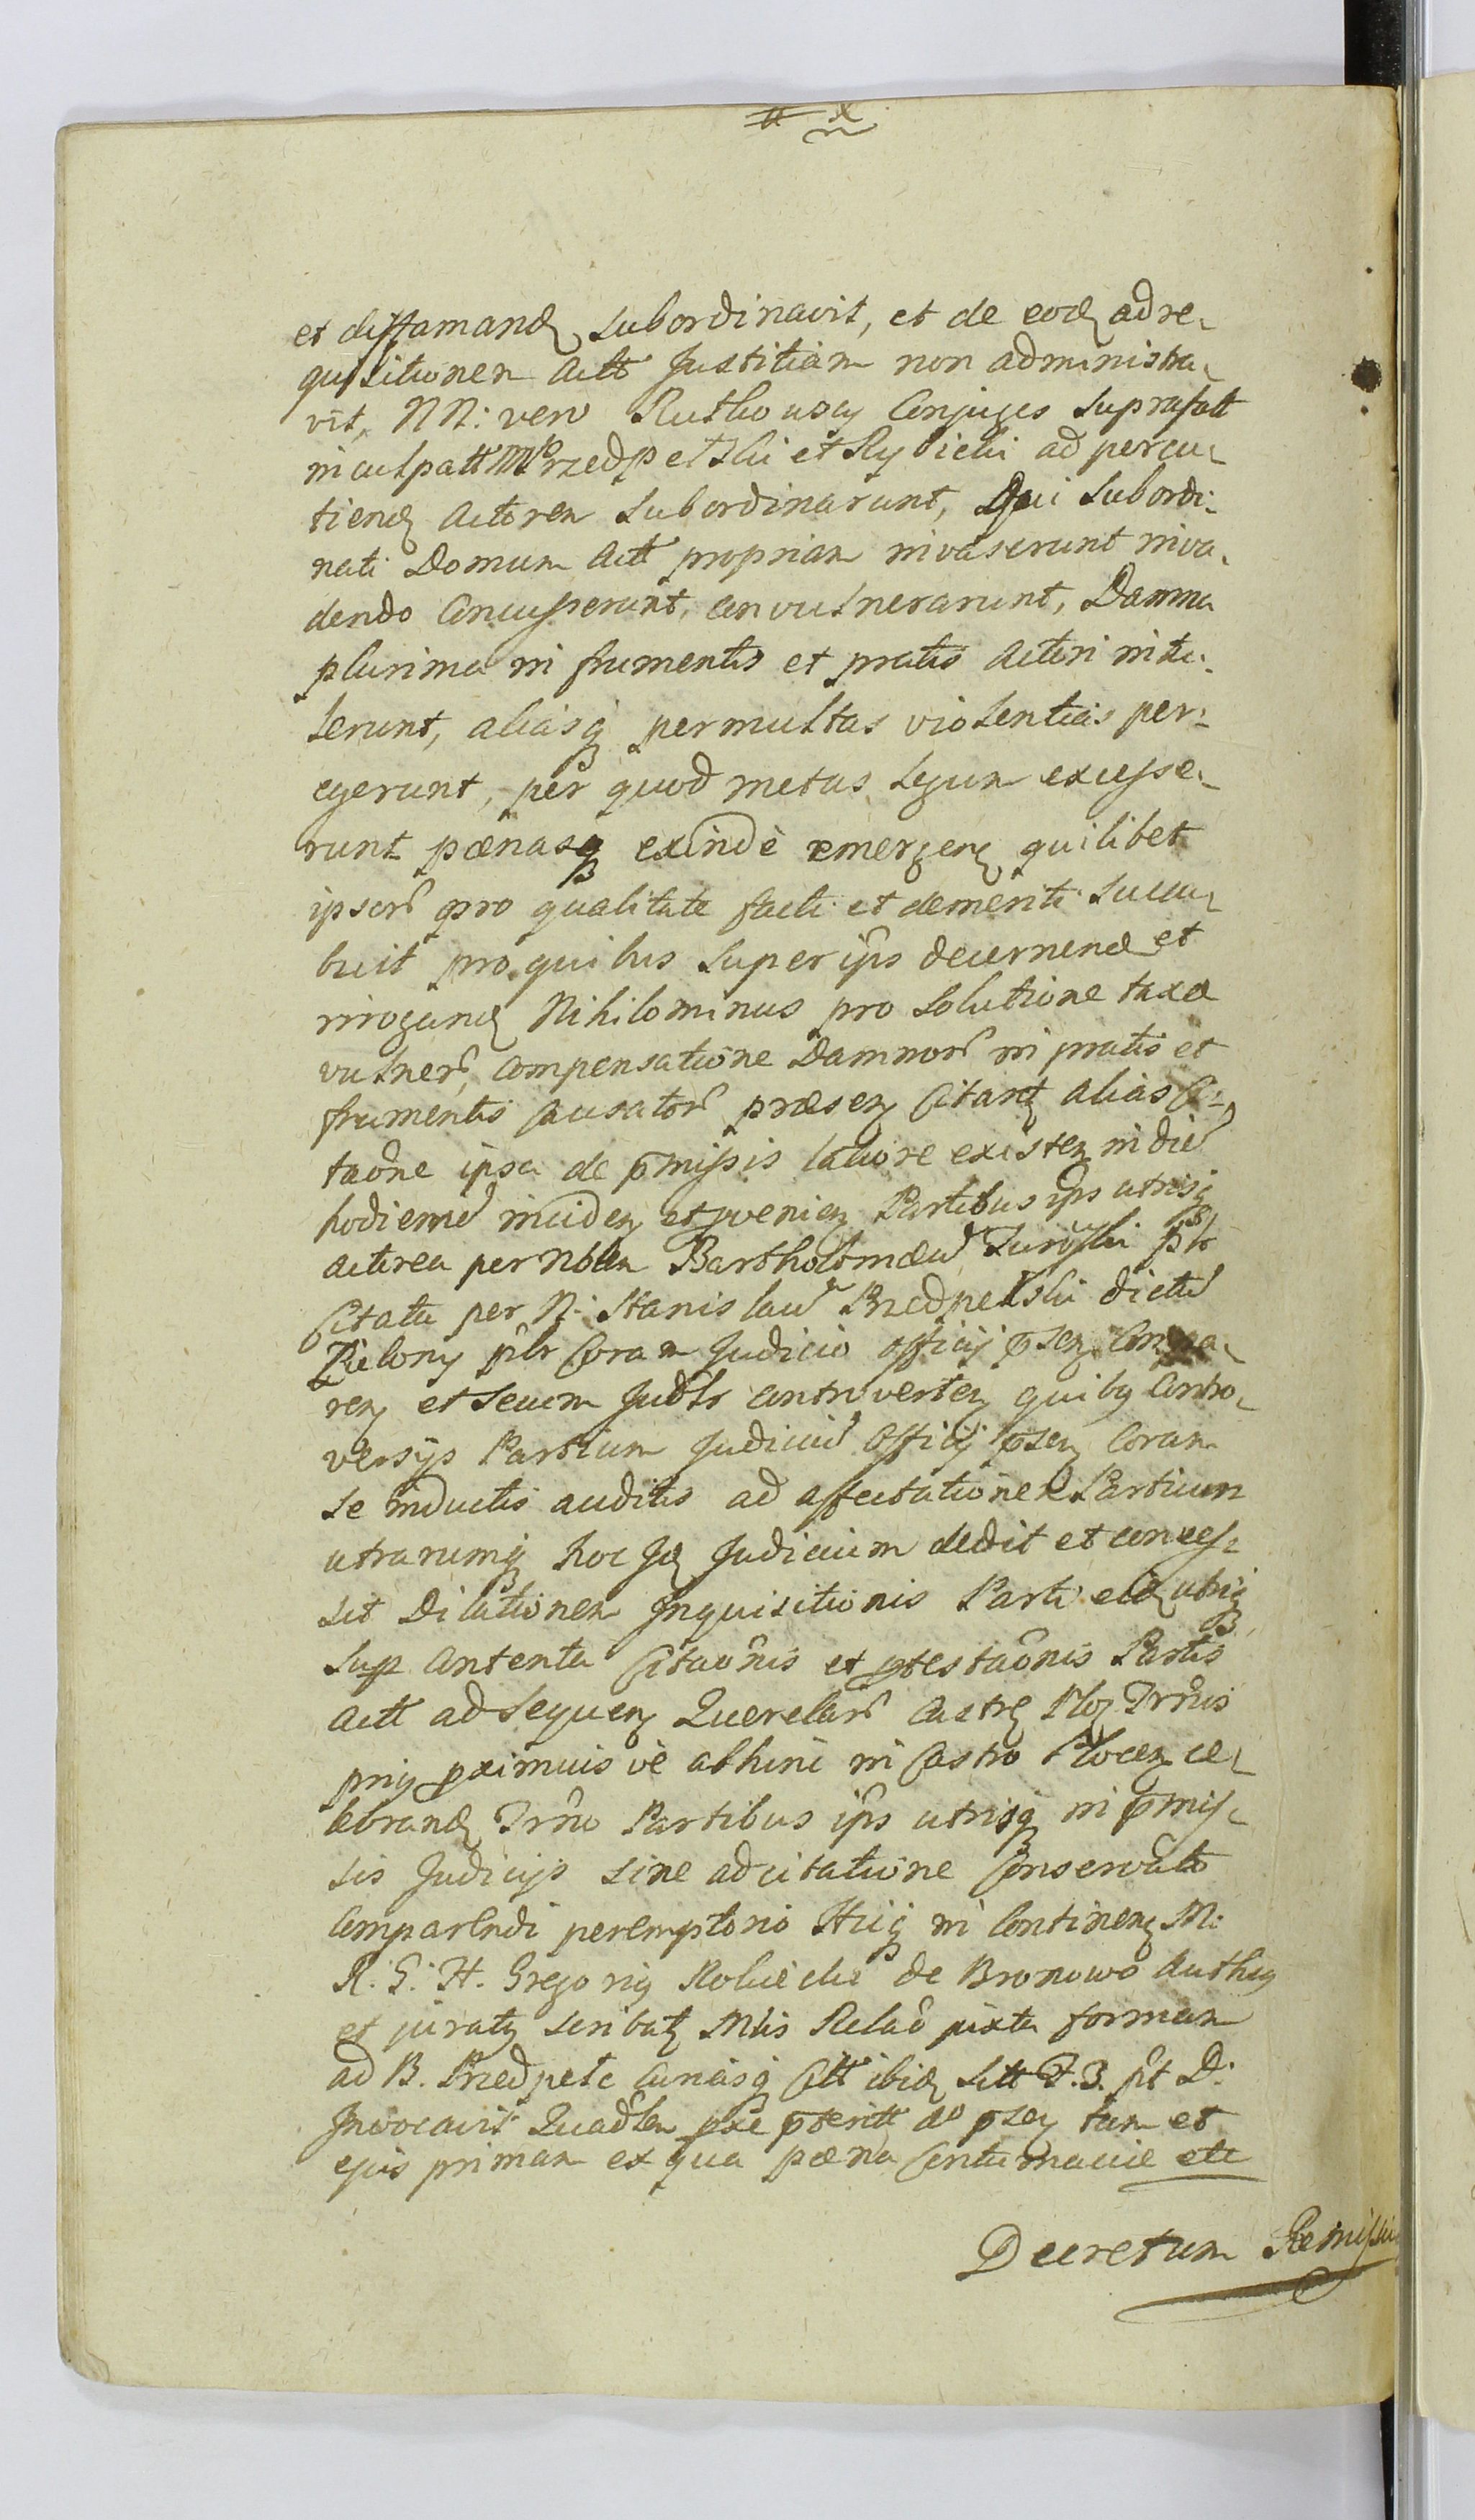 et diffamand subordinavit, et de eod ad re-
quisitionem Actt Justitiam non administra-
vit, NN: vero Ruthowscy Conjuges suprafatt
inculpatt Przedpełski et Rybicki ad percu-
tiend Actorem subordinarunt, Qui subordi-
nati Domum Actt propriam invaserunt inva-
dendo Concusserunt, convulnerarunt, Damna
plurima in frumentis et pratis Actori intu-
lerunt, aliasq permultas violentias per-
egerunt, per quod metas Legum excesse-
runt pœnasq exinde emergen quilibet
ipsor pro qualitate facti et demeriti succu-
buit pro quibus super ips decernend et
irrogand Nihilominus pro Solutione taxæ
vulner, compensatione Damnor in pratis et
frumentis causator præsen Citant alias Ci-
taone ipsa de pmissis latiore existen in die
hodierna inciden et pvenien Partibus ips utrisq
actorea per Nblem Bartholomæu Turoski plr
Citata per N. Stanislau Przedpełski dictu
Zielony plr Coram Judicio Officij psen Compa-
ren et secum Judlr controverten quibq Contro-
versijs Partium Judiciu Officij psen Coram
se inductis auditis ad affectationem Partium
utrarumq hoc Id Judicium dedit et conces-
sit Dilationem Inquisitionis Parti eid utriq
sup contenta Citaonis et ptestaonis Partis
Actt ad sequen Querelar Castren Ploc Trnis
pnij pximius ve abhinc in Castro Plocen ce-
lebrand Trno Partibus ips utrisq in pmis-
sis Judicijs sine adcitatione Conservato
comparendi peremptorio Huiq in Continen M:
R. G. H. Gregorig Robiecki de Bronowo Authen
et jurat scribat Mtis Relao juxta formam
ad B. Przedpełc Cunasq Citt ibid sitt F. 3. pt D.
Invocavit Quadlem pxe pteritt Ao psen tam et
ejus primam ex qua pœna Contumaciæ etc
Decretum Remissio